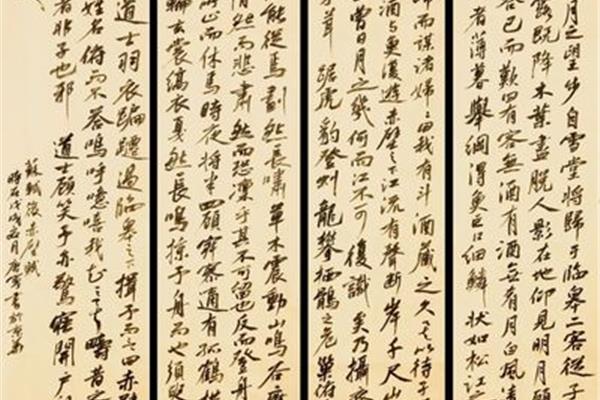 月之望步自雪堂將歸于臨皋二客從予
露既降木葉盡脫人影在地仰見明月顧
答已而歎曰有客無酒有酒無肴月白風清
者薄暮舉網得魚巨口細鱗狀如松江之
歸而謀諸婦婦曰我有斗酒藏之久矣以待子
酒與魚復遊赤壁之下江流有聲斷岸千尺山
曾日月之幾何而江不可復識矣乃攝
茸踞虎豹登虬龍攀栖鶻之危巢俯
能從焉劃然長嘯草木震動山鳴谷應
悄然而悲肅然而恐凜乎其不可留也反而登舟
所止而休焉時夜將半四顧寂寥適有孤鶴橫
輪玄裳縞衣戛然長鳴掠予舟而西也須臾
道士羽衣蹁躚過臨皋之下揖予而言曰赤壁
姓名俯而不答嗚呼噫嘻我知之矣疇昔
者非子也邪 道士顧笑予亦驚寤開戶
蘇軾後赤壁賦